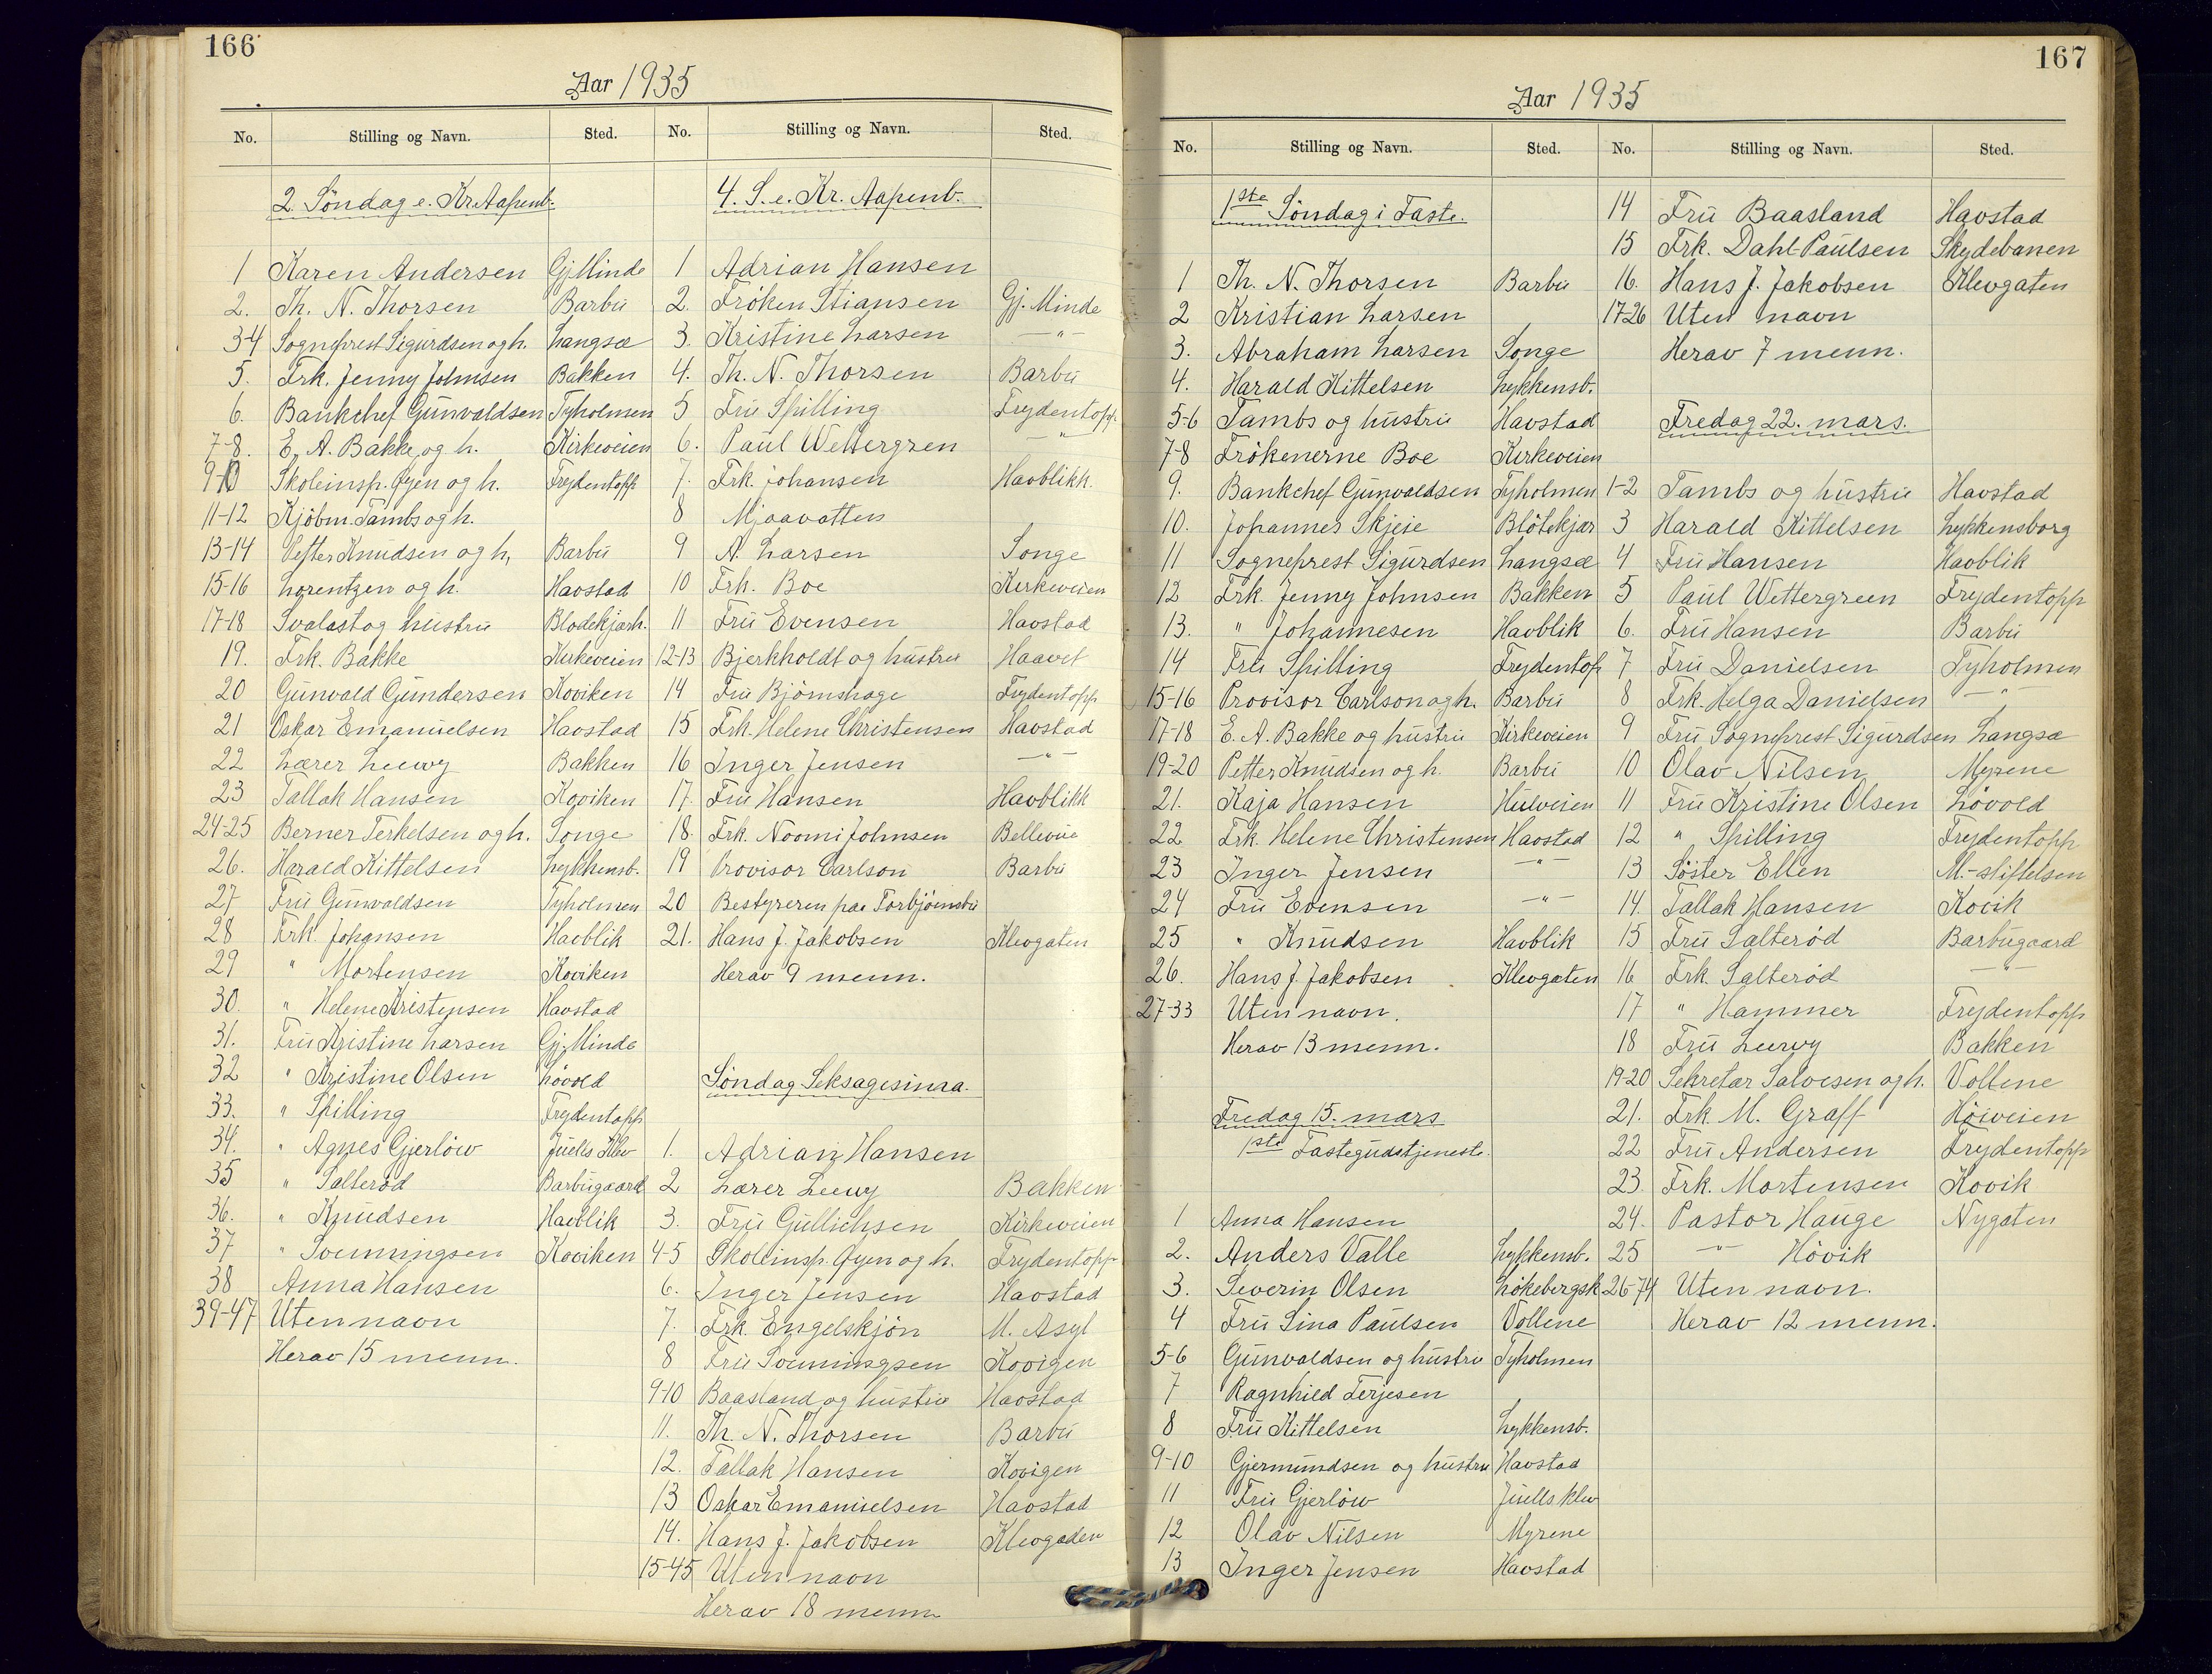 166
Aar 1935
No. Stilling og Navn. Sted.
2. Söndag e. Kr. Aapenb.
1 Karen Andersen Gj. Minde
2. Th. N. Thorsen Barbu
3-4 Sogneprest Sigurdsen og h. Langsæ
5. Frk. Jenny Johnsen Bakken
6. Bankchef Gunvaldsen Tyholmen
7-8. E. A. Bakke og h. Kirkeveien
9-10 Skoleinsp. Øyen og h. Frydentopp
11-12 Kjöbm. Tambs og h.
13-14 Petter Knudsen og h. Barbu
15-16 Lorentzen og h. Havstad
17-18 Svalast og hustru Blodekjærh.
19. Frk. Bakke Kirkeveien
20 Gunvald Gundersen Koviken
21 Oskar Emanuelsen Havstad
22 Lærer Leewy Bakken
23 Tallak Hansen Koviken
24-25 Berner Terkelsen og h. Songe
26. Harald Kittelsen Lykkensb.
27 Fru Gunvaldsen Tyholmen
28 Frk. Johansen Havblik
29 " Mortensen Koviken
30. " Helene Kristensen Havstad
31. Fru Kristine Larsen Gj. Minde
32 " Kristine Olsen Lövold
33. " Spilling Frydentopp
34. " Agnes Gjerlöw Juells Klev
35 " Salteröd Barbugaard
36. " Knudsen Havblik
37 " Svenningsen Koviken
38 Anna Hansen
39-47 Uten navn
Herav 15 menn.
No. Stilling og Navn. Sted.
4. S. e. Kr. Aapenb.
1 Adrian Hansen
2. Fröken Stiansen Gj. Minde
3. Kristine Larsen —"—
4. Th. N. Thorsen Barbu
5 Fru Spilling Frydentopp.
6. Paul Wettergren —"—
7. Frk. Johansen Havblikk.
8 Mjaavatten
9 A. Larsen Songe
10 Frk. Boe Kirkeveien
11 Fru Evensen Havstad
12-13 Bjerkholdt og hustru Haavet
14 Fru Björnshage Frydentopp
15 Frk. Helene Christensen Havstad
16 Inger Jensen —"—
17. Fru Hansen Havblikk
18. Frk. Noomi Johnsen Bellevue
19 Provisor Carlson Barbu
20 Bestyreren paa Torbjörnsbu
21. Hans J. Jakobsen Klevgaten
Herav 9 menn.
Söndag Seksagesima.
1. Adrian Hansen
2 Lærer Leewy Bakken
3. Fru Gullichsen Kirkeveien
4-5 Skoleinsp. Øyen og h. Frydentopp
6. Inger Jensen Havstad
7. Frk. Engelskjön M. Asyl
8 Fru Svenningsen Kovigen
9-10 Baasland og hustru Havstad
11. Th. N. Thorsen Barbu
12. Tallak Hansen Kovigen
13 Oskar Emanuelsen Havstad
14. Hans J. Jakobsen Klevgaden
15-45 Uten navn
Herav 18 menn
167
Aar 1935
No. Stilling og Navn. Sted.
1ste Söndag i Faste.
1 Th. N. Thorsen Barbu
2 Kristian Larsen
3. Abraham Larsen Songe
4. Harald Kittelsen Lykkensb.
5-6 Tambs og hustru Havstad
7-8 Frökenerne Boe Kirkeveien
9. Bankchef Gunvaldsen Tyholmen
10. Johannes Skjeie Blötekjær
11 Sogneprest Sigurdsen Langsæ
12 Frk. Jenny Johnsen Bakken
13. " Johannesen Havblik
14 Fru Spilling Frydentop
15-16 Provisor Carlson og h. Barbu
17-18 E. A. Bakke og hustru Kirkeveien
19-20 Petter Knudsen og h. Barbu
21. Kaja Hansen Hulveien
22 Frk. Helene Christensen Havstad
23 Inger Jensen —"—
24 Fru Evensen —"—
25 " Knudsen Havblik
26. Hans J. Jakobsen Klevgaten
27-33 Uten navn.
Herav 13 menn.
Fredag 15. mars
1ste Fastegudstjeneste.
1 Anna Hansen
2. Anders Valle Lykkensb.
3. Severin Olsen Lökebergsk
4 Fru Lina Paulsen Vollene
5-6 Gunvaldsen og hustru Tyholmen
7 Ragnhild Terjesen
8 Fru Kittelsen Lykkensb.
9-10 Gjermundsen og hustru Havstad
11 Fru Gjerlöw Juells klev
12 Olav Nilsen Myrene
13 Inger Jensen Havstad
No. Stilling og Navn. Sted.
14 Fru Baasland Havstad
15 Frk. Dahl-Paulsen Skydebanen
16. Hans J. Jakobsen Klevgaten
17-26 Uten navn
Herav 7 menn.
Fredag 22. mars.
1-2 Tambs og hustru Havstad
3 Harald Kittelsen Lykkensborg
4 Fru Hansen Havblik
5 Paul Wettergreen Frydentopp
6. Fru Hansen Barbu
7 Fru Danielsen Tyholmen
8 Frk. Helga Danielsen —"—
9 Fru Sogneprest Sigurdsen Langsæ
10 Olav Nilsen Myrene
11 Fru Kristine Olsen Lövold
12 " Spilling Frydentopp
13 Söster Ellen M.-stiftelsen
14. Tallak Hansen Kovik
15 Fru Salteröd Barbugaard
16 Frk. Salteröd —"—
17 " Hammer Frydentopp
18 Fru Leewy Bakken
19-20 Sekretær Salvesen og h. Vollene
21. Frk. M. Graff Höiveien
22 Fru Andersen Frydentopp
23. Frk. Mortensen Kovik
24. Pastor Hauge Nygaten
25 —"— Hövik
26-74 Uten navn.
Herav 12 menn.